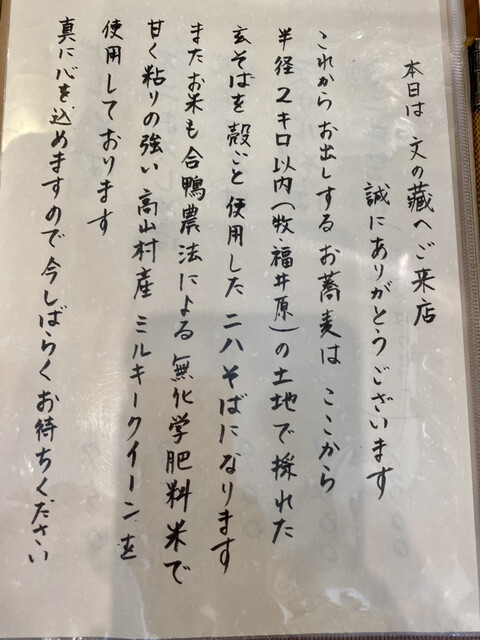 本日は 文の蔵へご来店
誠にありがとうございます
これからお出しするお蕎麦は ここから
半径2キロ以内(牧・福井原)の土地で採れた
玄そばを殻ごと使用した二八そばになります
またお米も合鴨農法による無化学肥料米で
甘く粘りの強い高山村産ミルキークイーンを
使用しております
真に心を込めますので今しばらくお待ちください